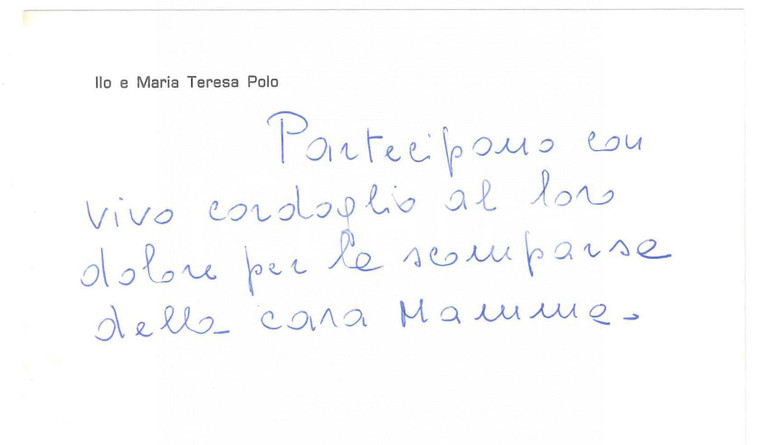 Ilo e Maria Teresa Polo
Partecipano con
vivo cordoglio al loro
dolore per la scomparsa
della cara Mamma.